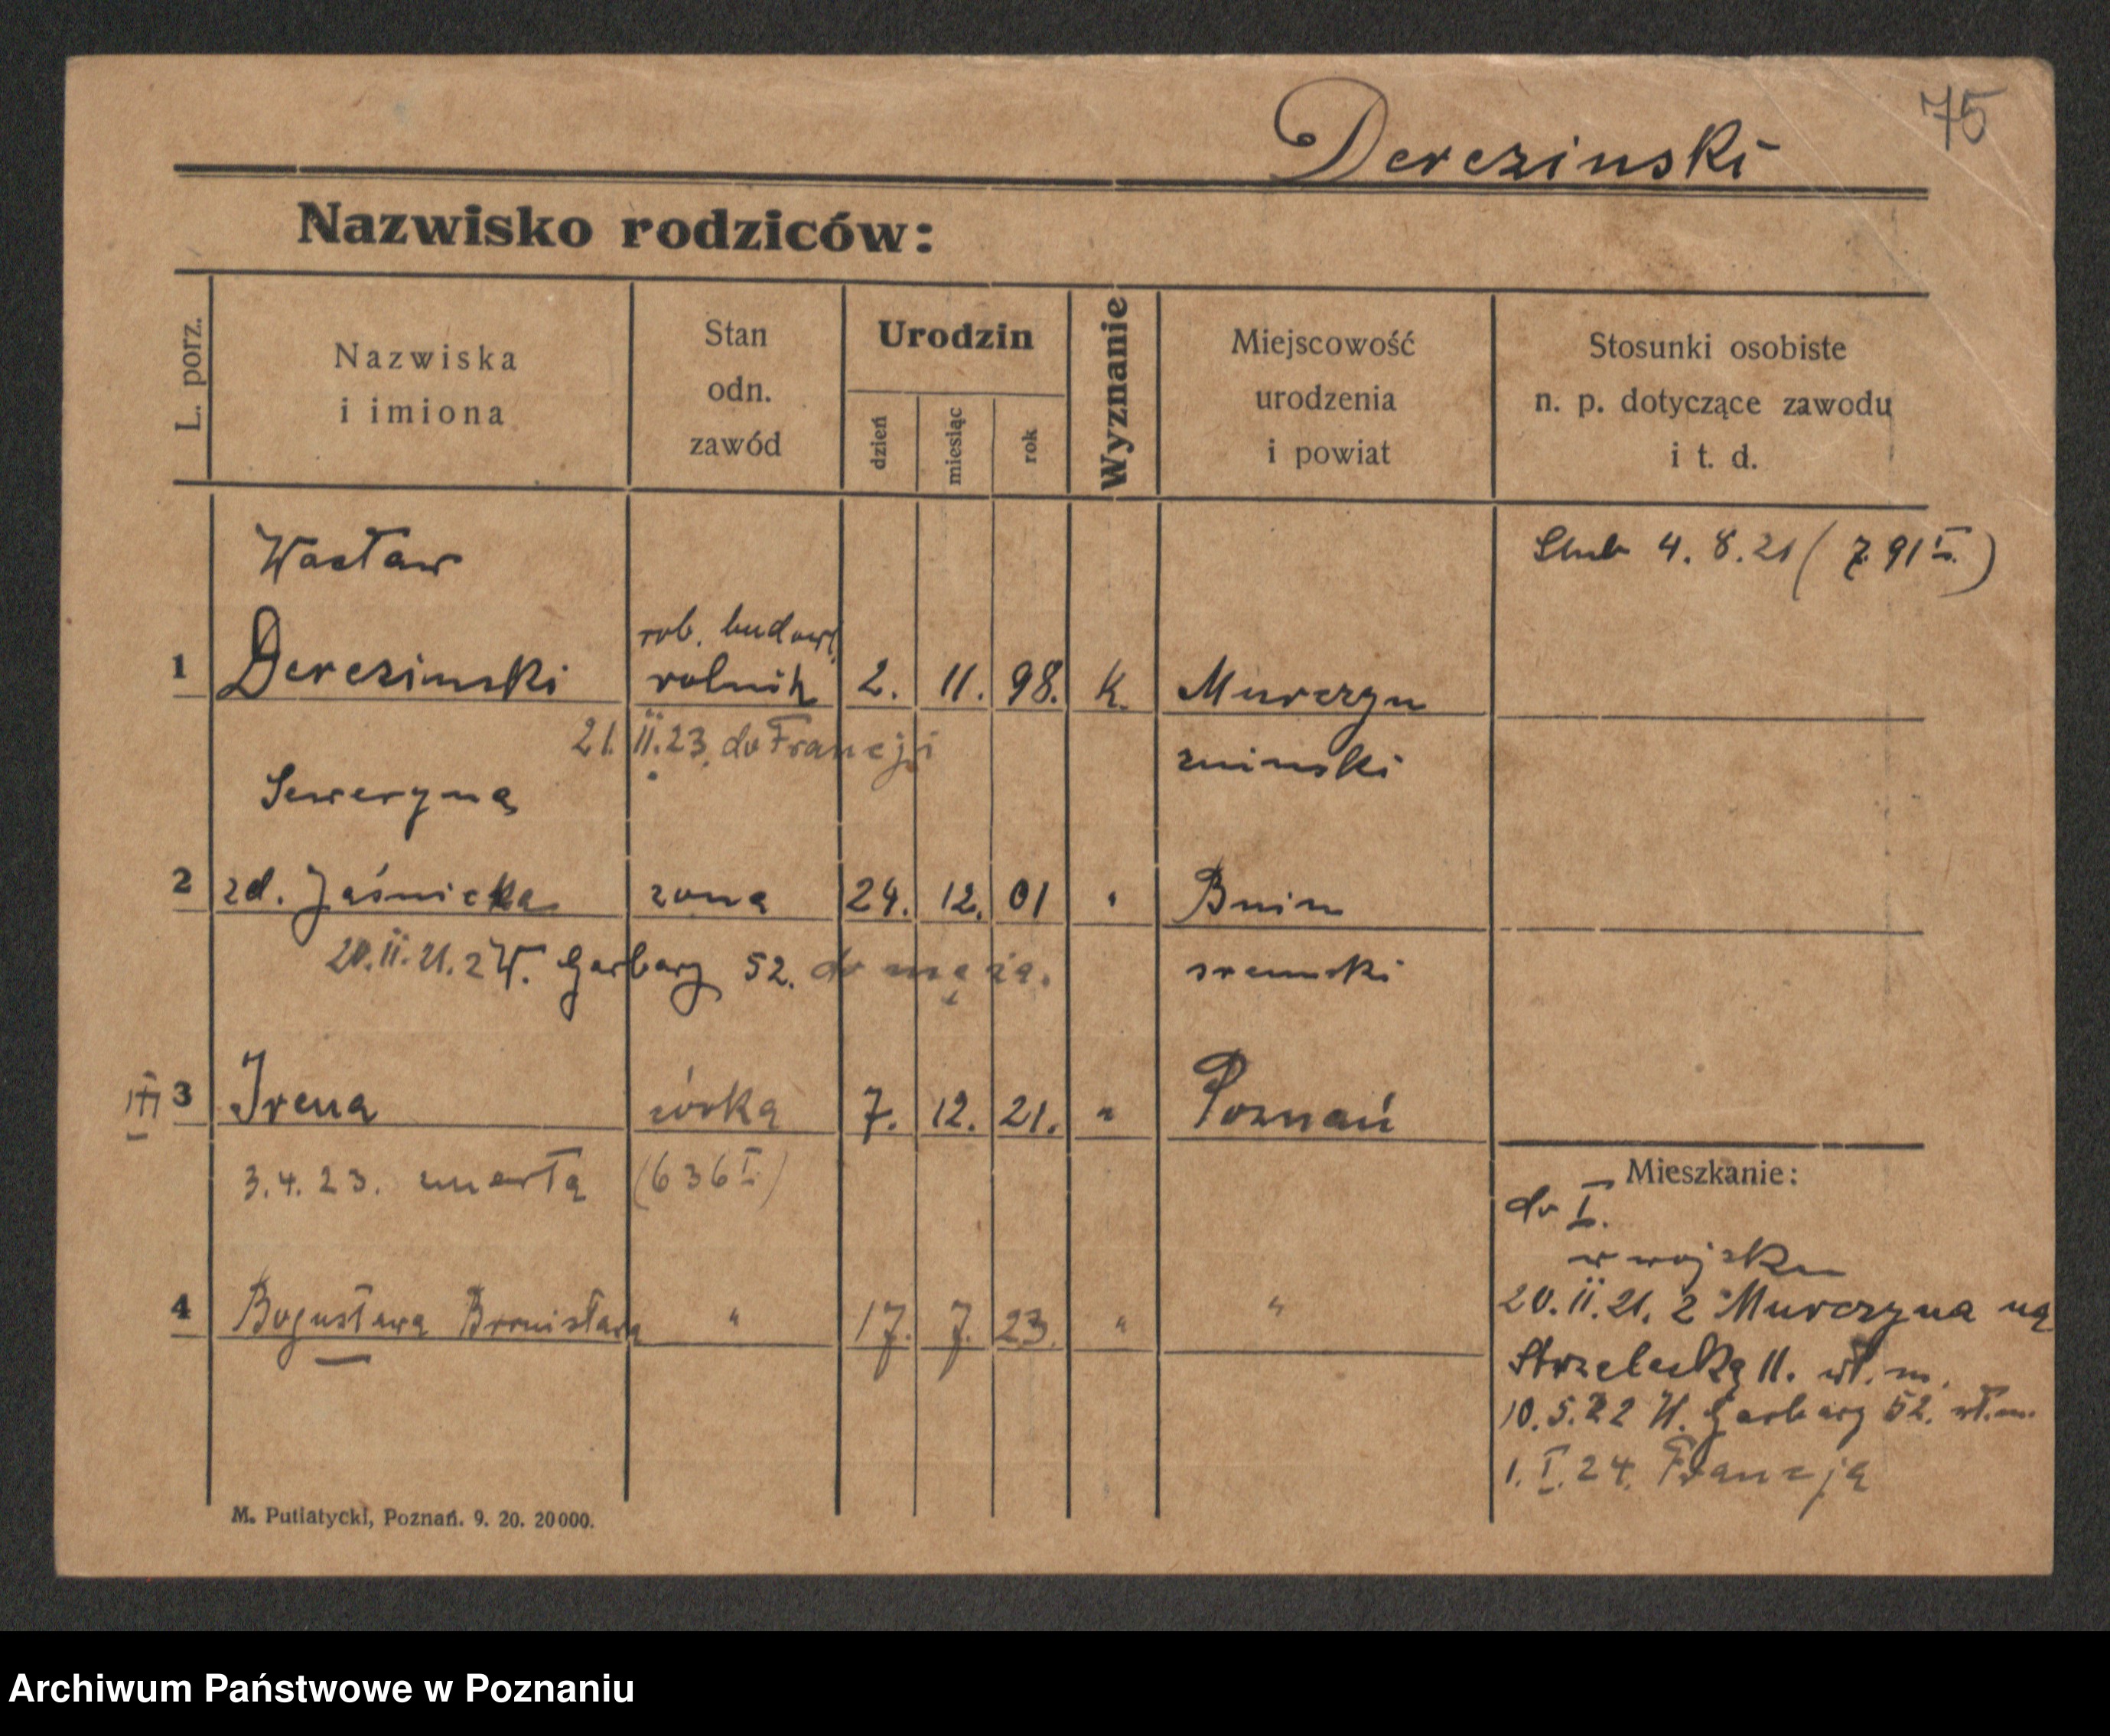 75
Derezinski
Nazwisko rodziców:
L. porz.
Nazwiska
i imiona
Stan
odn.
zawód
Urodzin
dzień
miesiąc
rok
Wyznanie
Miejscowość
urodzenia
i powiat
Stosunki osobiste
n. p. dotyczące zawodu
i t. d.
Wacław
Slub 4. 8. 21 ( 7.91 I. )
rob. budowl.
1 Derezinski rolnik 2. 11. 98. K. Murczyn
21. II. 23. do Francji
zninski
Seweryna
2 zd. Jaśnicka zona 24. 12. 01 " Bnin
20. II. 21. z W. Garbary 52. do męża.
sremski
3 Irena córka 7. 12. 21. " Poznań
3. 4. 23. umarła (636 I.)
4 Bogusława Bronisława " 17. 7. 23. " "
Mieszkanie:
do I.
w wojsku
20. II. 21. z Murczyna na
Strzelecką 11. wł. m.
10. 5. 22 W. Garbary 52. wł. m.
1. I. 24. Francja
M. Putiatycki, Poznań. 9. 20. 20000.
Archiwum Państwowe w Poznaniu